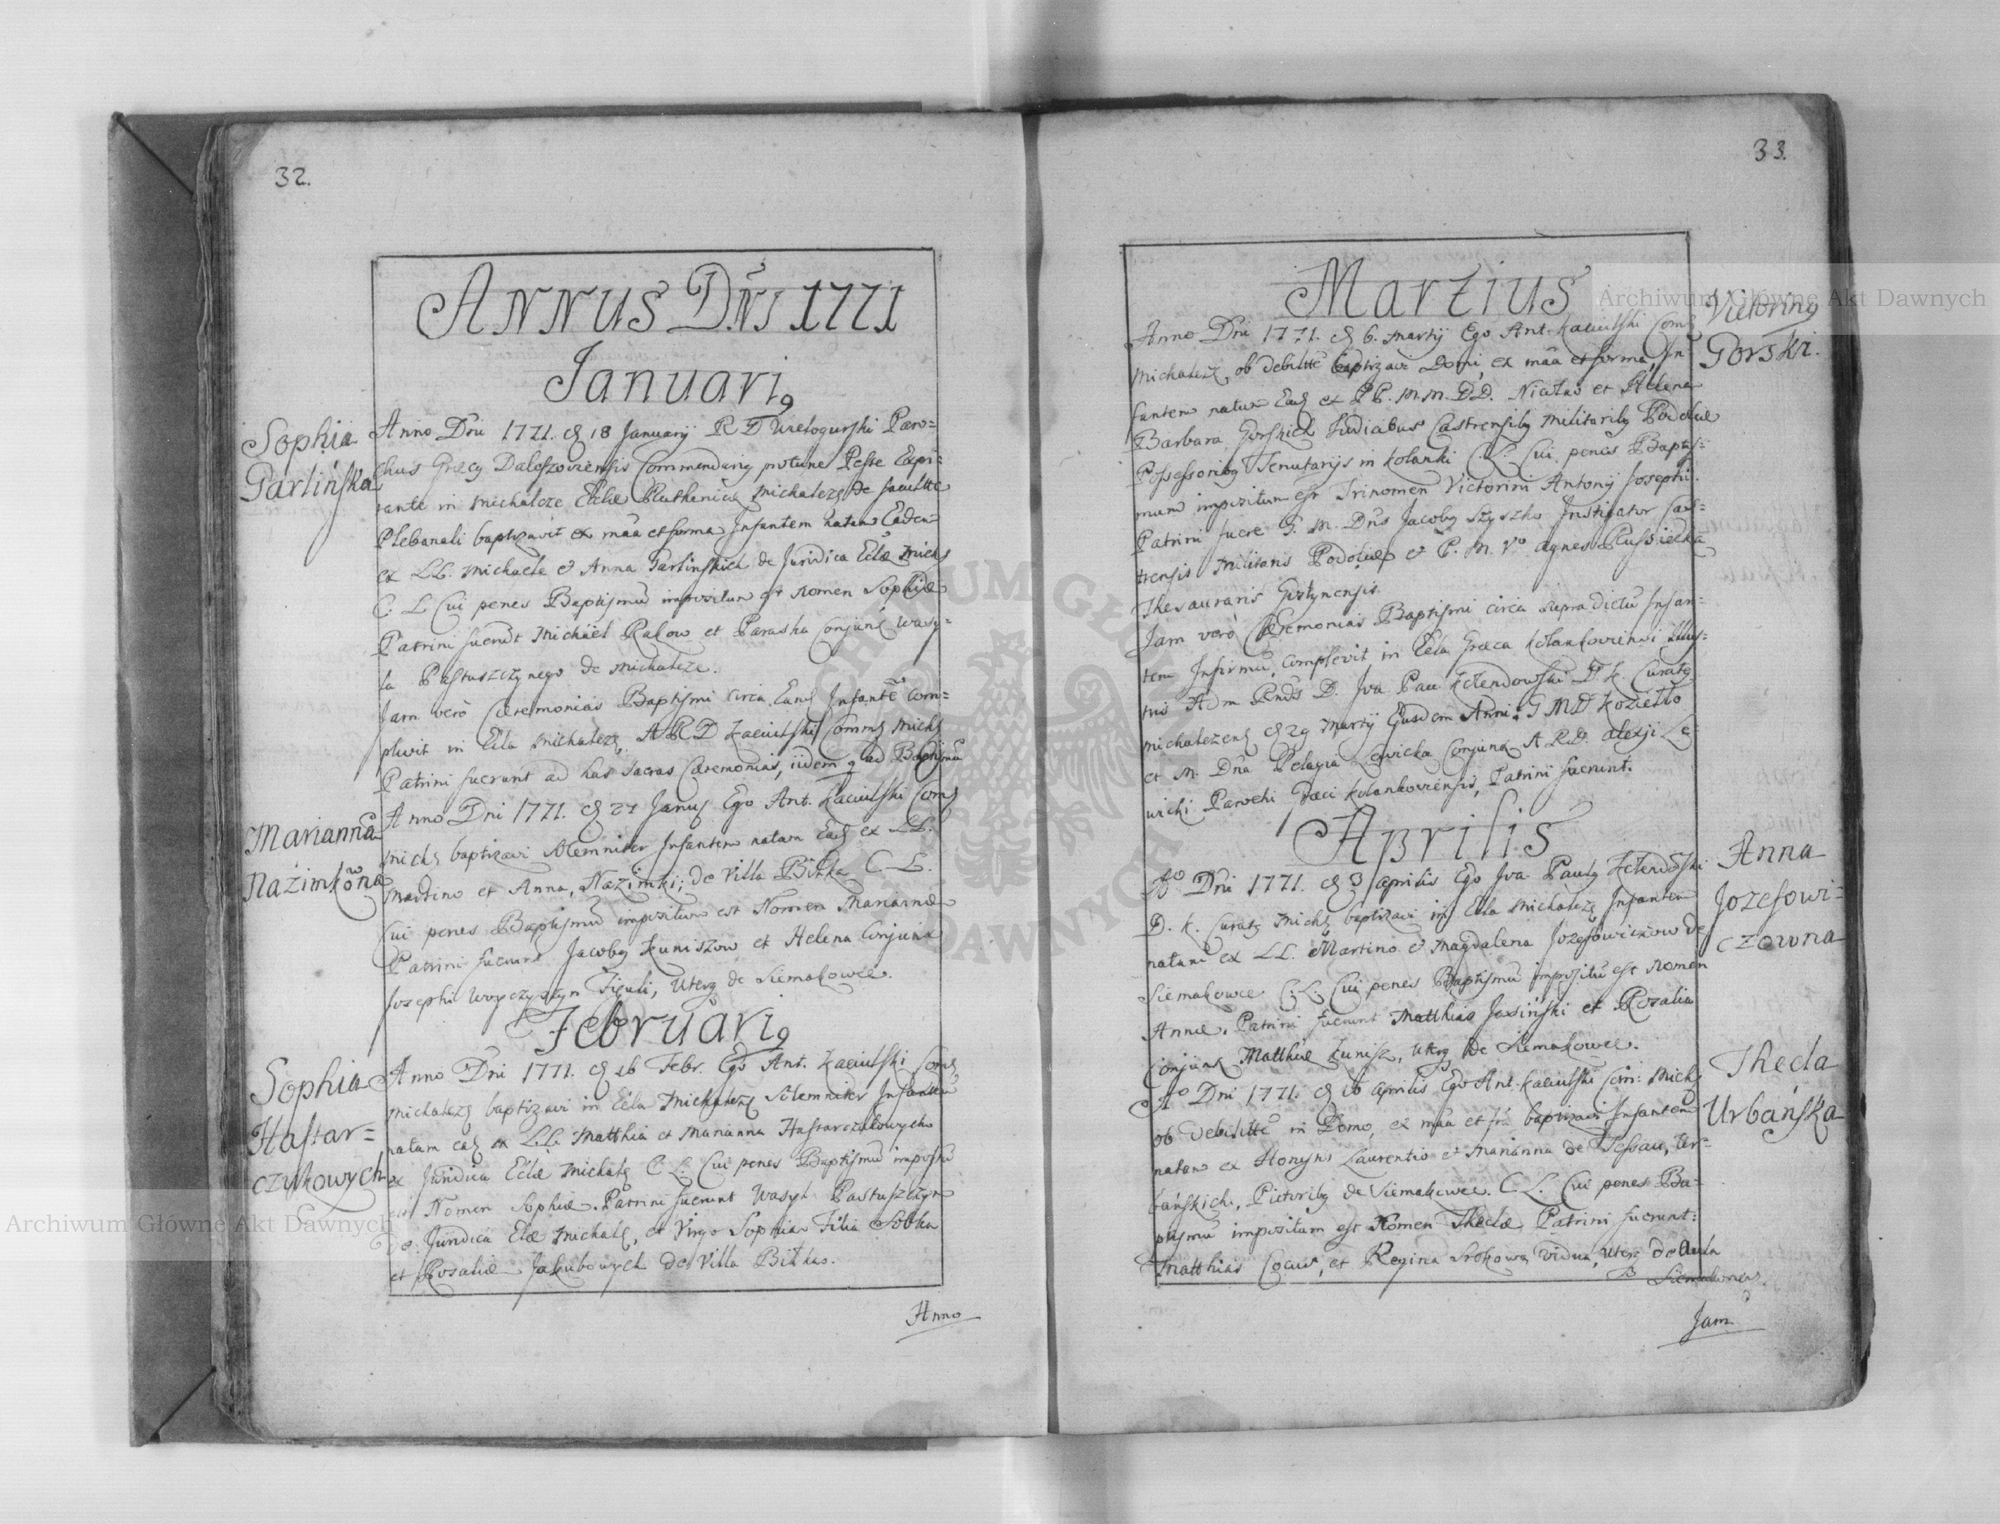 32.
ANNUS DNI 1771
Januari9
Sophia
Garlińska
Anno Dni 1771. 18 Januarij R D Wielogurski Paro=
chus Græcy Daleszoviensis Commendarij Peste Expi=
rante in Michalcze Eccłæ Ruthenicæ Michalcz de facultte
Plebanali baptizavit ex mãa et forma Infantem natam Eadem
ex LL. Michaele et Anna Garlińskich de Juridica Eccłæ Mich
C. L Cui penes Baptismũ impositum est Nomen Sophiæ
Patrini fuerũt Michael Rakow et Paraska Conjunx Wasy=
la Pastuszczynego de Michalcze.
Jam verò Cæremonias Baptismi circa Infantẽ com=
plevit in Eccla Michalcz A R D Kaciulski Comm Mich
Patrini fuerunt ad has sacras Cæremonias, iidem q ad Baptismũ
Marianna
Nazimkówna
Anno Dni 1771. 27 Janu Ego Ant. Kaciulski Com
Mich baptizavi solemniter Infantem natam ex LL.
Martino et Anna, Nazimki; de Villa Bitka C. L.
Cui penes Baptismũ impositum est Nomen Mariannæ
Patrini fuerunt Jacob9 Kuniszow et Helena Conjunx
Josephi Woyczyszyn Figuli, Uterq de Siemakowce.
Februari9
Sophia
Hastar=
czukowych
Anno Dni 1771. 16 Febr. Ego Ant. Kaciulski Com
Michalcz baptizavi in Eccla Michalcz solemniter Infantem
natam ex LL. Matthia et Marianna Hastarczukowych
ex Juridica Eccłæ Michalc C L. Cui penes Baptismũ impositũ
est Nomen Sophiæ. Patrini fuerunt Wasyl Pastuszczyn
de Juridica Eccłæ Michalc, et Virgo Sophia Filia Sobka
et Rosaliæ Jakubowych de Villa Bitka.
Anno
33.
Martius
Victorin9
Gorski.
Anno Dni 1771. 6. Martij Ego Ant. Kaciulski Com
Michalcz ob debilittẽ baptizavi Domi, ex mãa et forma, In
fantem natum ex PP. M.M. D.D. Nicolao et Helena
Barbara Gorskich Judicibus Castrensib9 militarib9 Podoliæ
Possessorib9 Tenutarijs in Kolanki C. L. Cui penes Baptis=
mum impositum est Trinomen Victorini Antonij Josephi.
Patrini fuere G. M. Dns Jacob9 Szyszko Instigator Cas=
trensis militaris Podoliæ et P. M. Vo Agnes
Thesauraris
Jam verò Cæremonias Baptismi circa supradictũ Infan=
tem Infirmũ, complevit in Eccla Græca Kolankoviensi Illus=
tris Adm Rnds D. Jva Pau Zełendowski D. K. Curat9
Michalczens 29 Martij Ejusdem Anni: G M D Koziełło
et M. Dna Pelagia Lewicka Conjunx A R D. Alexij Le=
wicki Parochi Græci Kolankoviensis, Patrini fuerunt.
Aprilis
Anna
Jozefowi=
czowna
Ao Dni 1771. 3 Aprilis Ego Jva. Paul9 Zełendowski
D. K. Curat9 Mich baptizavi in Eccla Michalcz Infantem
natam ex LL. Martino et Magdalena Jozefowiczow de
Siemakowce C. L. Cui penes Baptismũ impositũ est Nomen
Annæ. Patrini fuerunt Matthias Jasiński et Rosalia
Conjunx Matthiæ Kunisz, Uterq de Siemakowce.
Thecla
Urbańska
Ao Dni 1771. 16 Aprilis Ego Ant. Kaciulski Com: Mich
ob debilittẽ in Domo, ex mãa et frã baptizavi Infantem
natam ex Honesis Laurentio et Marianna de Ur=
bańskich, Pictorib9 de Siemakowce. C. L. Cui penes Ba=
ptismũ impositum est Nomen Theclæ Patrini fuerunt:
Matthias Cocus, et Regina Srokowa vidua, Uterq de Aula
Siemakowcens.
Jam
Archiwum Główne Akt Dawnych
Archiwum Główne Akt Dawnych
ARCHIWUM GŁÓWNE AKT DAWNYCH